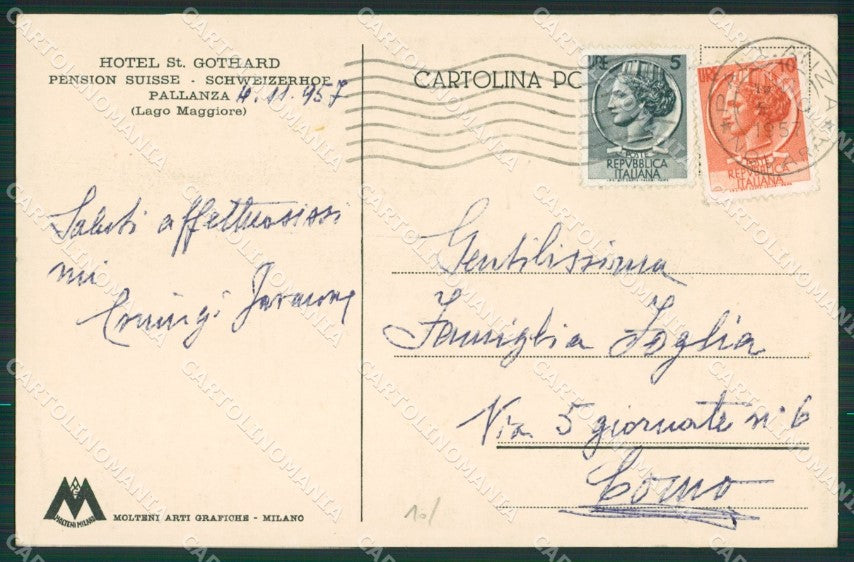 HOTEL St. GOTHARD
PENSION SUISSE - SCHWEIZERHOF
PALLANZA 4.11.957
(Lago Maggiore)
Saluti affettuosissi
mi
CARTOLINA PO
LIRE 5
POSTE
REPVBBLICA
ITALIANA
LIRE 10
POSTE
REPVBBLICA
ITALIANA
1957
Gentilissima
Famiglia Foglia
Via 5 giornate n° 6
Como
10/
MOLTENI MILANO
MOLTENI ARTI GRAFICHE - MILANO
CARTOLINOMANIA